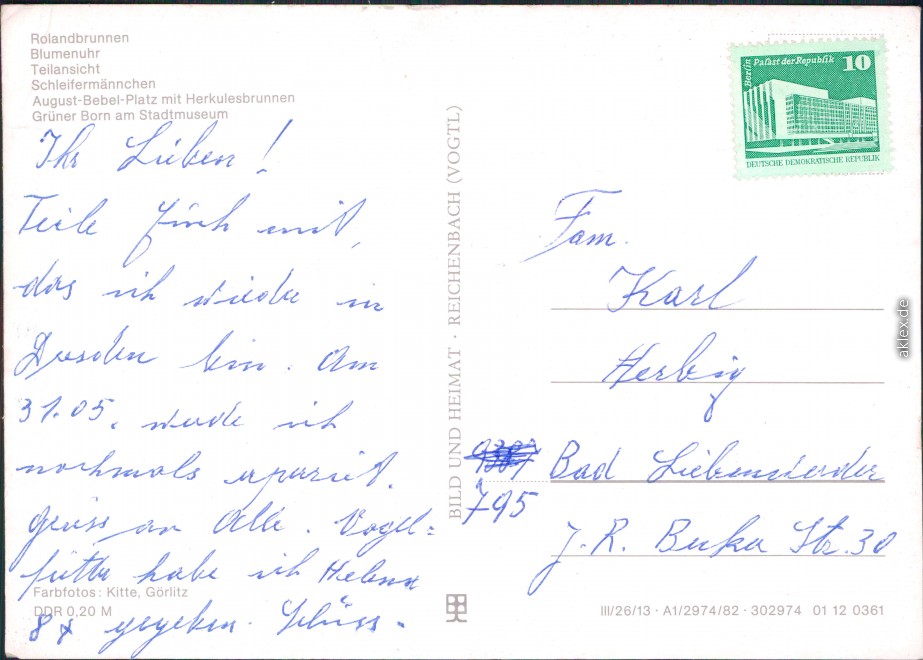 Rolandbrunnen
Blumenuhr
Teilansicht
Schleifermännchen
August-Bebel-Platz mit Herkulesbrunnen
Grüner Born am Stadtmuseum
Ihr Lieben!
Teile Euch mit,
das ich wieder in
Dresden bin. Am
31.05. werde ich
nochmals operiert.
Gruss an Alle. Vogel=
futter habe ich Helena
8x gegeben. Schluss.
Farbfotos: Kitte, Görlitz
DDR 0,20 M
BILD UND HEIMAT · REICHENBACH (VOGTL)
Berlin Palast der Republik 10
DEUTSCHE DEMOKRATISCHE REPUBLIK
Fam.
Karl
Herbig
Bad Liebenwerda
795
J. R. Becher Str. 30
III/26/13 · A1/2974/82 · 302974 01 12 0361
aklex.de